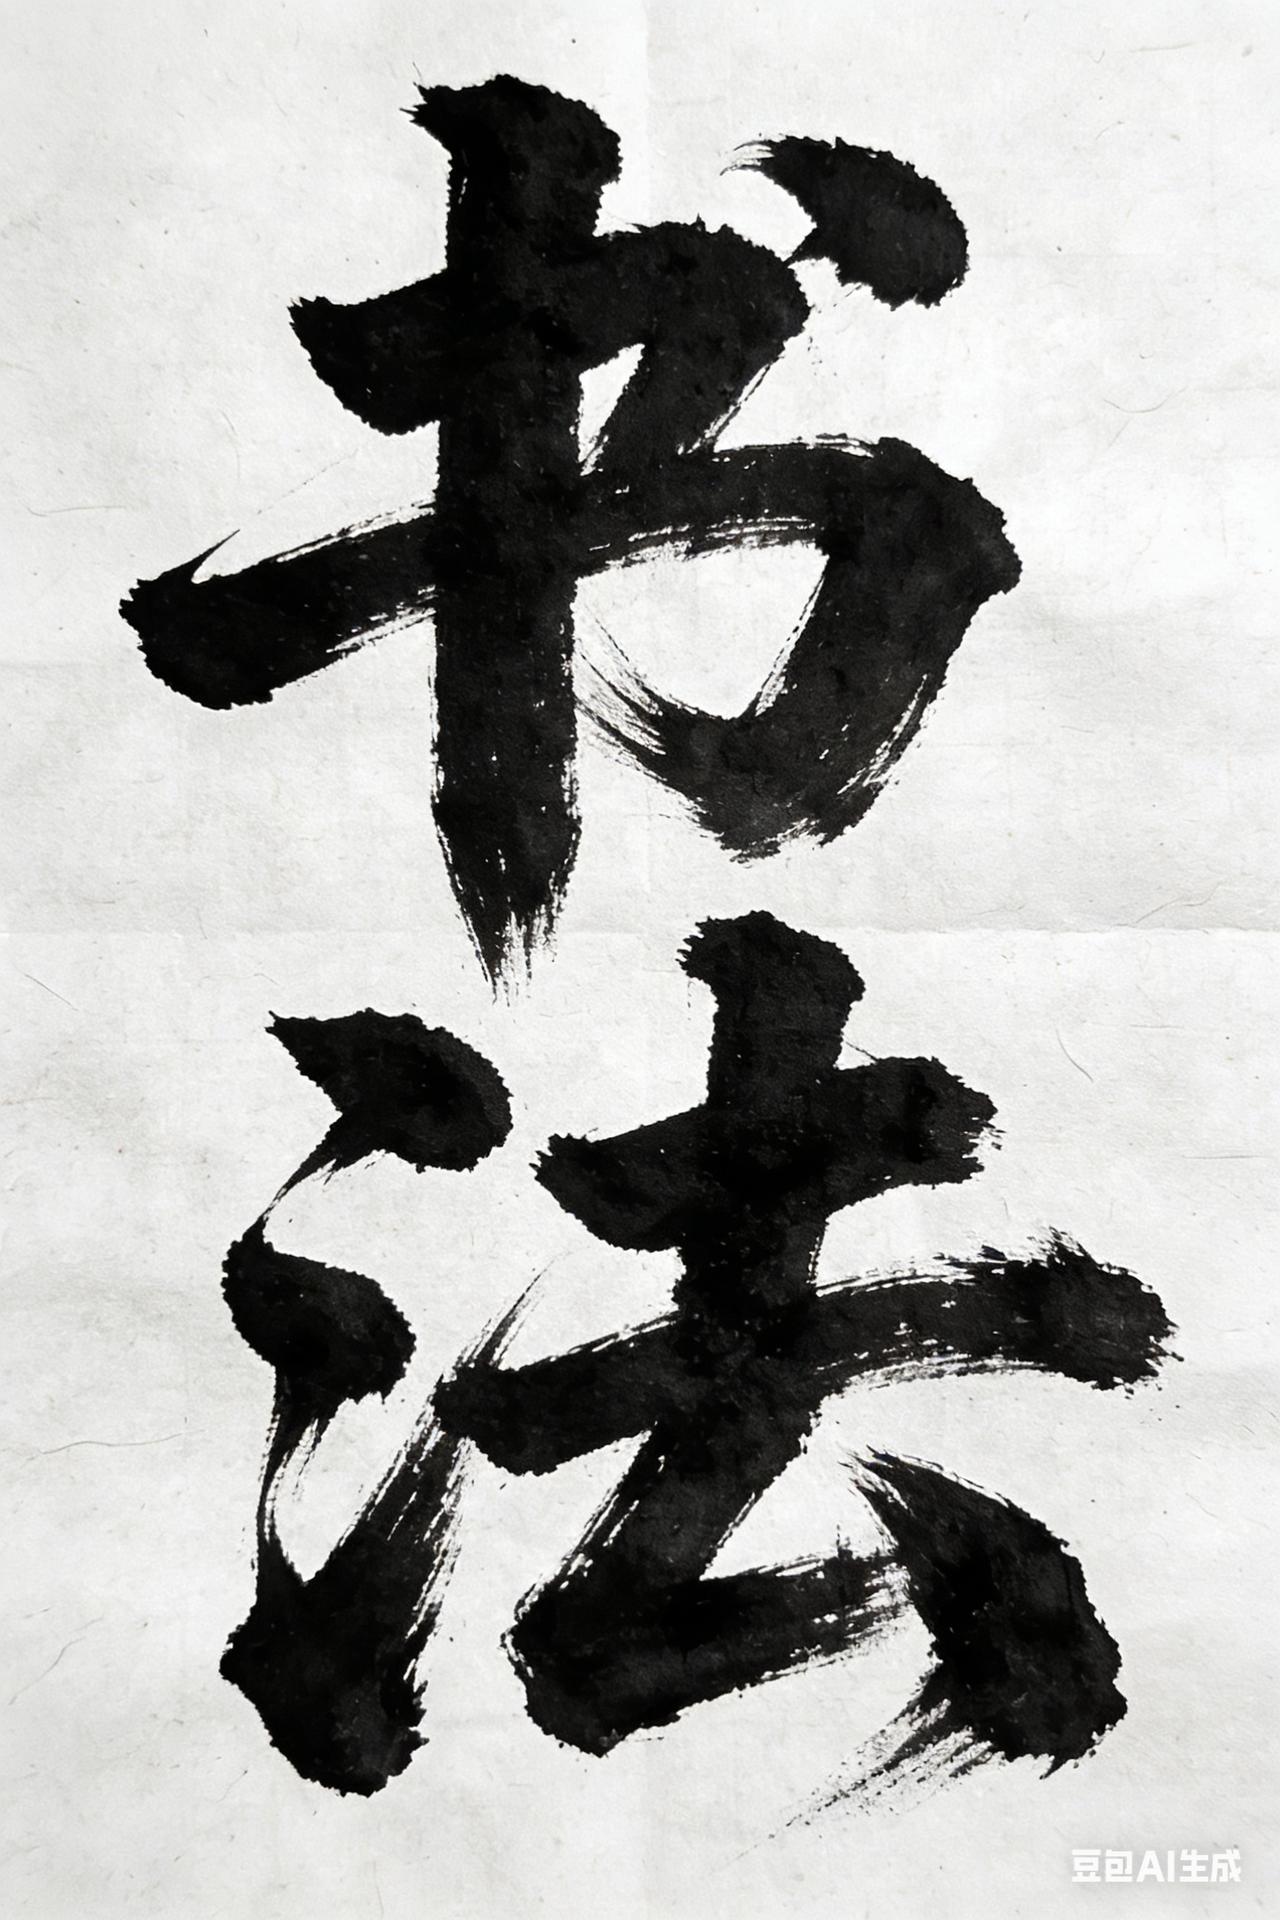 书
法
豆包AI生成